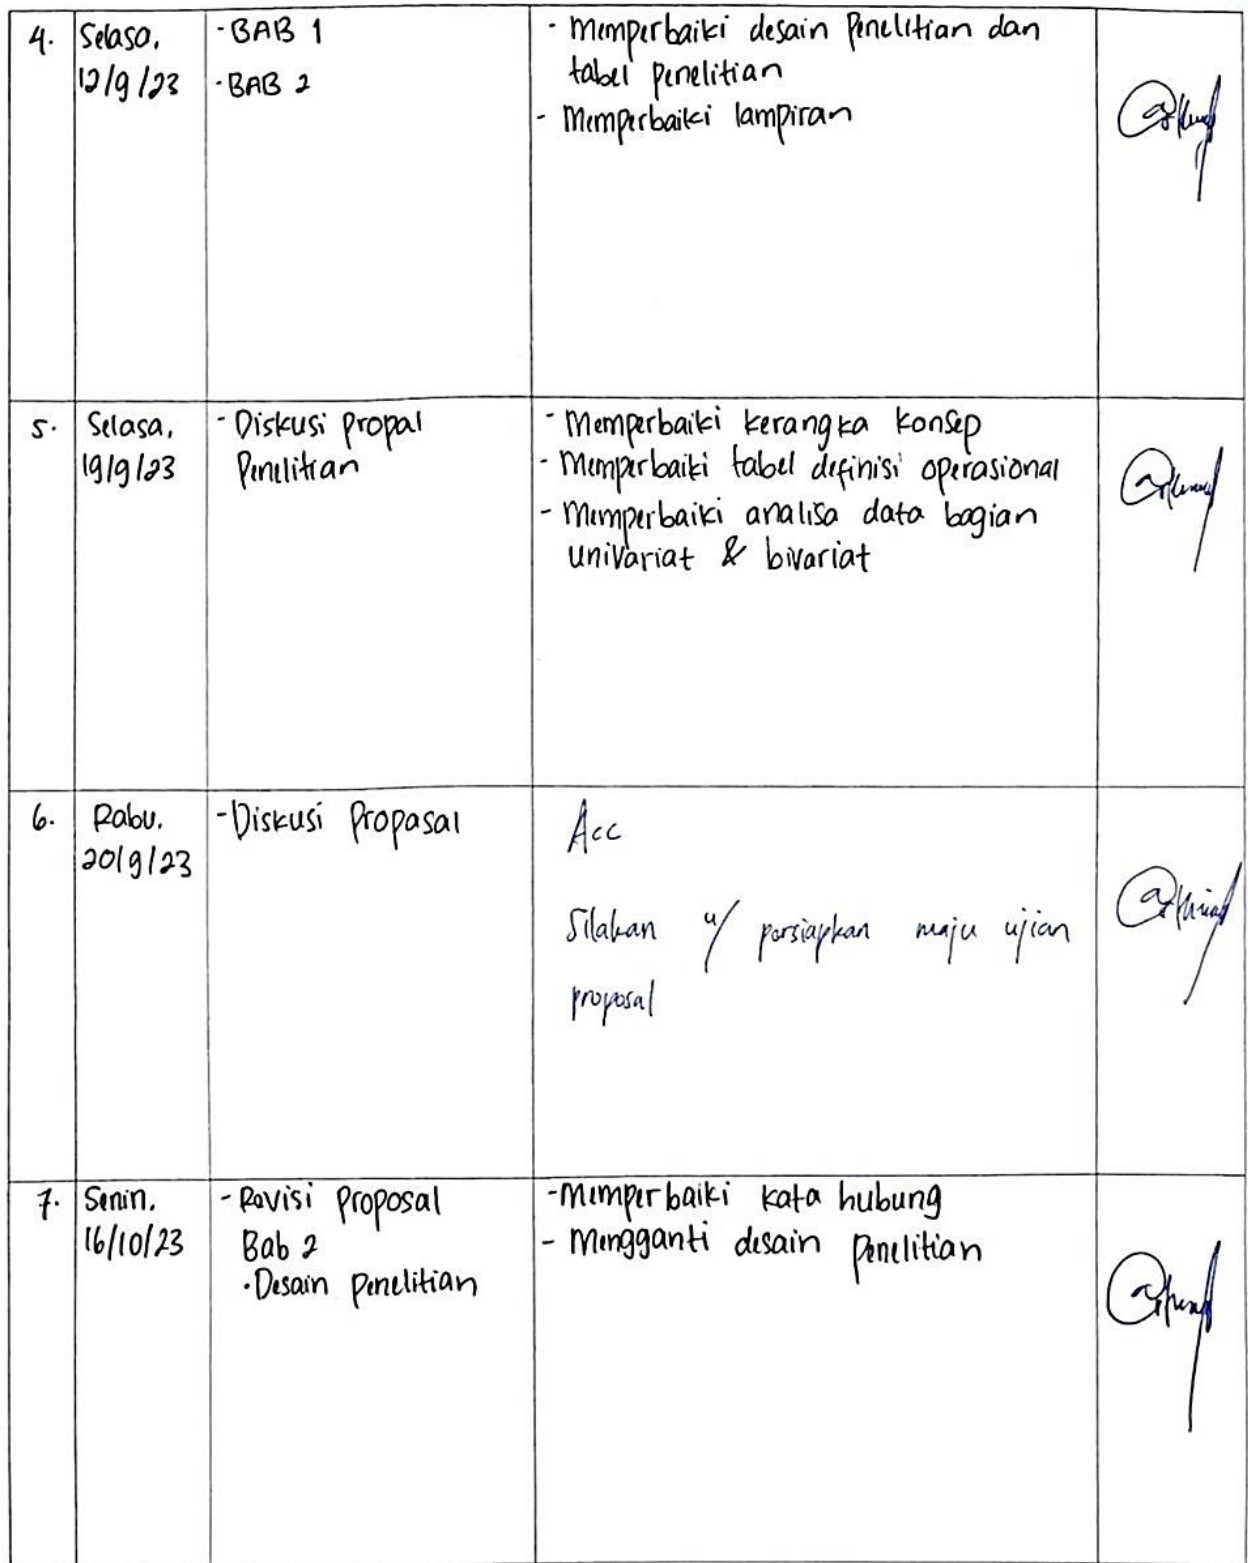 4.
Selasa,
12/9/23
- BAB 1
- BAB 2
- Memperbaiki desain penelitian dan
tabel penelitian
- Memperbaiki lampiran
5.
Selasa,
19/9/23
- Diskusi propal
Penelitian
- Memperbaiki kerangka konsep
- Memperbaiki tabel definisi operasional
- Memperbaiki analisa data bagian
univariat & bivariat
6.
Rabu,
20/9/23
- Diskusi Propasal
Acc
Silakan u/ persiapkan maju ujian
proposal
7.
Senin,
16/10/23
- Revisi Proposal
Bab 2
• Desain penelitian
- Memperbaiki kata hubung
- Mengganti desain penelitian